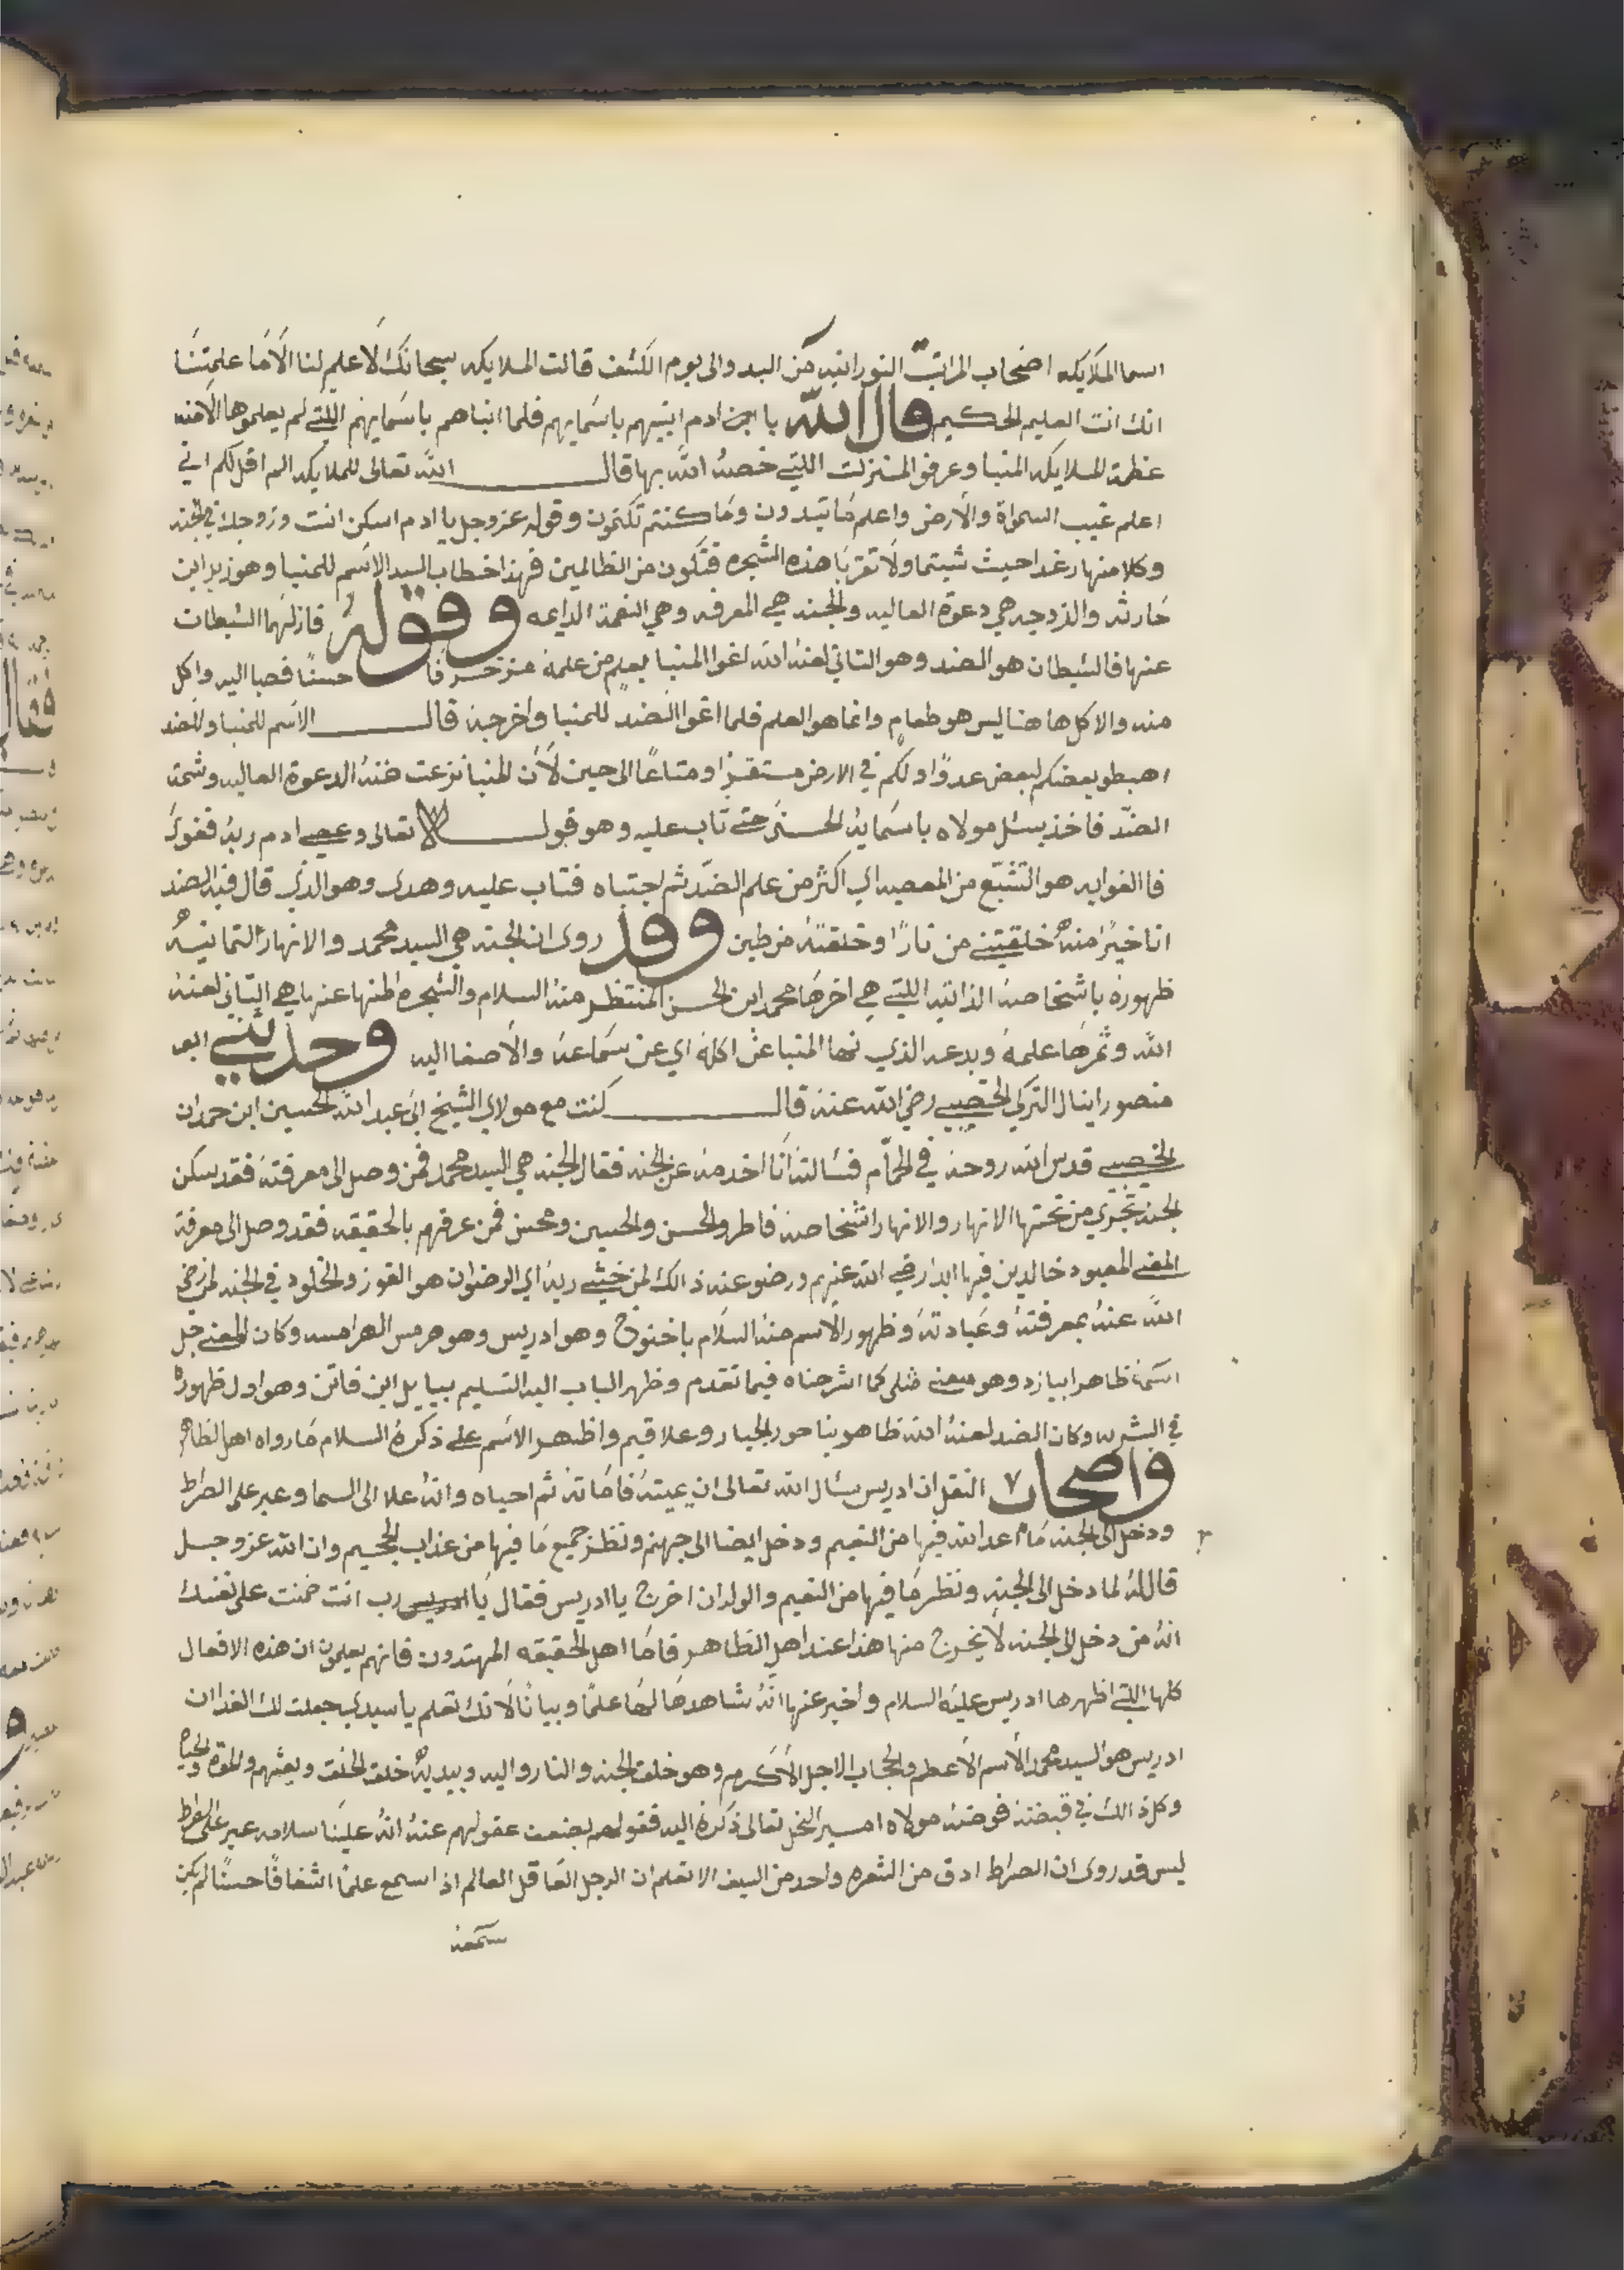 اسما الملايكه اصحاب المراتب النورانيه من البدو الى يوم الكشف قالت الملايكه سبحانك لا علم لنا الا ما علمتنا
انك انت العليم الحكيم قال الله يا ادم انبيهم باسمايهم فلما انباهم باسمايهم اللتي لم يعلموها الا منه
عظمة الملايكه المنبا وعرفو المنزلت اللتي خصه الله بها قال الله تعالى للملايكه الم اقل لكم اني
اعلم غيب السمواة والارض واعلم ما تبدون وما كنتم تكتمون وقوله عز وجل يا ادم اسكن انت وزوجك في الجنه
وكلا منها رغدا حيث شيتما ولا تقربا هذه الشجره فتكون من الظالمين فهذا خطاب السيد الاسم للمنبا وهو زيد ابن
حارثه والزوجيه هي دعوة العاليه والجنه هي المعرفه وهي النعمة الدايمه وقوله فازلهما الشيطان
عنها فالشيطان هو الضد وهو الثاني لعنه الله اغوا المنبا بعلم من علمه حسنًا فصبا اليه واكل
منه والاكل هاهنا ليس هو طعام وانما هو العلم فلما اغوا الضد للمنبا واخرجه قال الاسم للمنبا وللضد
اهبطو بعضكم لبعض عدوًا ولكم في الارض مستقرًا ومتاعًا الى حين لأن المنبا نزعت منه الدعوة العاليه وشمة
الضد فاخذ يسئل مولاه باسمايه الحسنى حتي تاب عليه وهو قول الله تعالى وعصي ادم ربه فغوى
فالغوايه هو التشبّع من المعصيه اي اكثر من علم الضد ثم اجتباه فتاب عليه وهدى وهو الذي قال فيه الضد
انا خيرًا منه خلقتني من نارًا وخلقته من طين وقد روى ان الجنه هي السيد محمد والانهار الثمانيه
ظهوره باشخاصه الذاتيه اللتي هي اخرها محمد ابن الحسن المنتظر منه السلام والشجره المنها عنها هي الثاني لعنه
الله وثمرها علمه وبدعه الذي نها المنبا عن اكله اي عن سماعه والاصغا اليه وحدثني ابو
منصور اينال التركي الخصيبي رضي الله عنه قال كنت مع مولاي الشيخ ابي عبد الله الحسين ابن حمدان
الخصيبي قدس الله روحه في الحمّام فسالته انا اخدمه عن الجنه فقال الجنه هي السيد محمد فمن وصل الى معرفته فقد سكن
الجنه تجري من تحتها الانهار والانهار اشخاصه فاطر والحسن والحسين ومحسن فمن عرفهم بالحقيقه فقد وصل الى معرفة
المعني المعبود خالدين فيها ابدا رضي الله عنهم ورضو عنه ذالك لمن خشي ربه اي الرضوان هو الفوز والخلود في الجنه لمن رضي
الله عنه بمعرفته وعبادته وظهور الاسم منه السلام باخنوخ وهو ادريس وهو هرمس الهرامسه وكان المعني جل
اسمه ظاهرا بيازد وهو معني مثلي كما اشرحناه فيما تقدم وظهر الباب اليه التسليم بيباييل ابن فاتن وهو اول ظهوره
في البشريه وكان الضد لعنه الله ظاهر بناحور الجبار وعلاقيم واظهر الاسم علي ذكره السلام ما رواه اهل الظاهر
واصحاب النقل ان ادريس سال الله تعالى ان يميته فاماته ثم احياه وانه علا الى السما وعبر على الصراط
ودخل الى الجنه ما اعد الله فيها من النعيم ودخل ايضا الى جهنم ونظر جميع ما فيها من عذاب الجحيم وان الله عز وجل
قال له لما دخل الى الجنه ونظر ما فيها من النعيم والولدان اخرج يا ادريس فقال يا رب انت ضمنت على نفسك
انه من دخل الى الجنه لا يخرج منها هذا عند اهل الظاهر فاما اهل الحقيقه المهتدون فانهم يعلمون ان هذه الافعال
كلها اللتي اظهرها ادريس عليه السلام واخبر عنها انه شاهدها لها علمًا وبيانًا لانك تعلم يا سيدي جعلت لك الفدا ان
ادريس هو السيد محمد الاسم الاعظم والحجاب الاجل الاكرم وهو خلق الجنه والنار واليه وبيديه خلقة الخلق وبعثهم والموة والحياه
وكل ذالك في قبضته فوضه مولاه امير النحل تعالى ذكره اليه فقولهم بضعف عقولهم عنه انه علينا سلامه عبر على الصراط
ليس قد روى ان الصراط ادق من الشعره واحد من السيف الا تعلم ان الرجل العاقل العالم اذا سمع علمًا شفافًا حسنًا لم يكن
سمعه